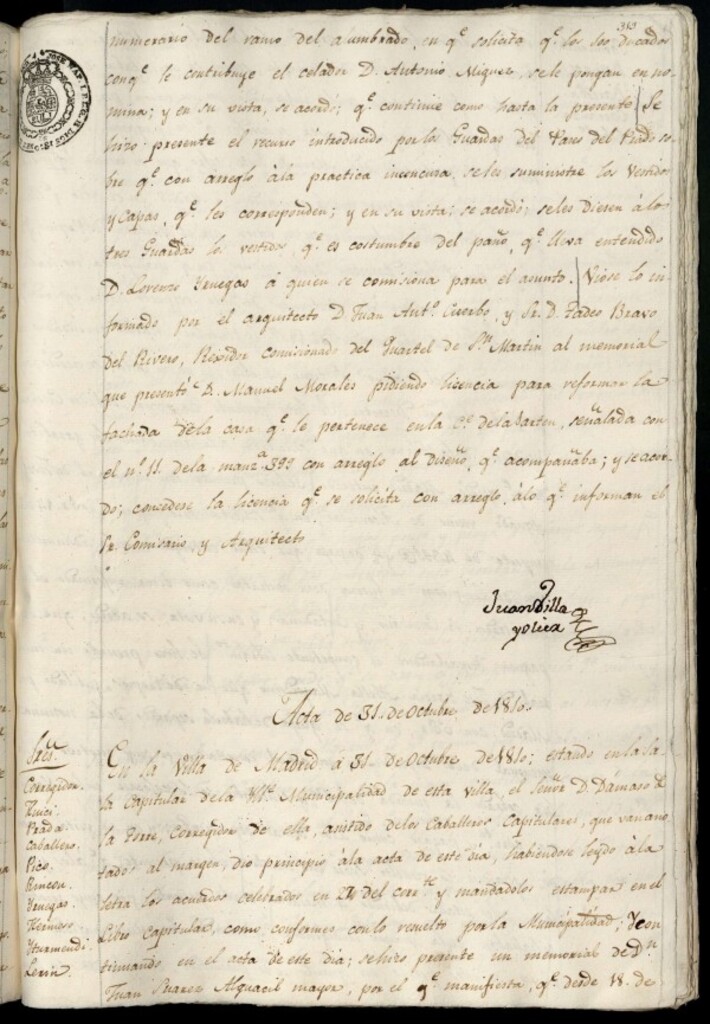 313
numerario del ramo del alumbrado, en q.e solicita q.e los 200 Ducados
conq.e le contribuye el celador D. Antonio Miguez, sele pongan en no-
mina; y en su vista, se acordó; q.e continúe como hasta la presente. Se
hizo presente el recurso introducido por los Guardas del Paseo del Prado so-
bre q.e con arreglo àla practica inconcusa, seles suministre los vestidos
y capas, q.e les corresponden; y en su vista; se acordó; seles diesen à los
tres Guardas los vestidos, q.e es costumbre del paño, q.e lleva entendido
D. Lorenzo Yruegas á quien se comisiona para el asunto. Vióse lo in-
formado por el arquitecto D. Juan Ant.o Cuerbo, y Sr. D. Tadeo Bravo
del Rivero, Rexidor comisionado del Quartel de S.n Martin al memorial
que presentó D. Manuel Morales pidiendo licencia para reformar la
fachada dela casa q.e le pertenece enla C.e dela Sarten, señalada con
el n.o 11. dela manz.a 399 con arreglo al Diseño, q.e acompañaba; y se acor-
dó; concederse la licencia q.e se solicita con arreglo, àlo q.e informan el
Sr. Comisario y Arquitecto
Juan Villa
y Olier
Acta de 31. de Octubre de 1810.
Sres.
Corregidor.
Prada
Caballero.
Pico.
Rincon.
Yruegas.
Hermoso.
Yturmendi.
Lerin.
En la Villa de Madrid á 31. de Octubre de 1810; estando enla Sa-
la capitular dela Ill.e Municipalidad de esta villa, el Señor D. Dámaso de
la Torre, Corregidor de ella, asistido delos Caballeros Capitulares, que van ano-
tados al margen, dio principio àla acta de este dia, habiendose leydo àla
letra los acuerdos celebrados en 27 del corr.te y mandadolos estampar en el
Libro Capitular, como conformes conlo resuelto por la Municipalidad; Y con-
tinuando en el acta de este dia; sehizo presente un memorial de D.n
Juan Suarez Alguacil mayor, por el q.e manifiesta, q.e desde 18. de